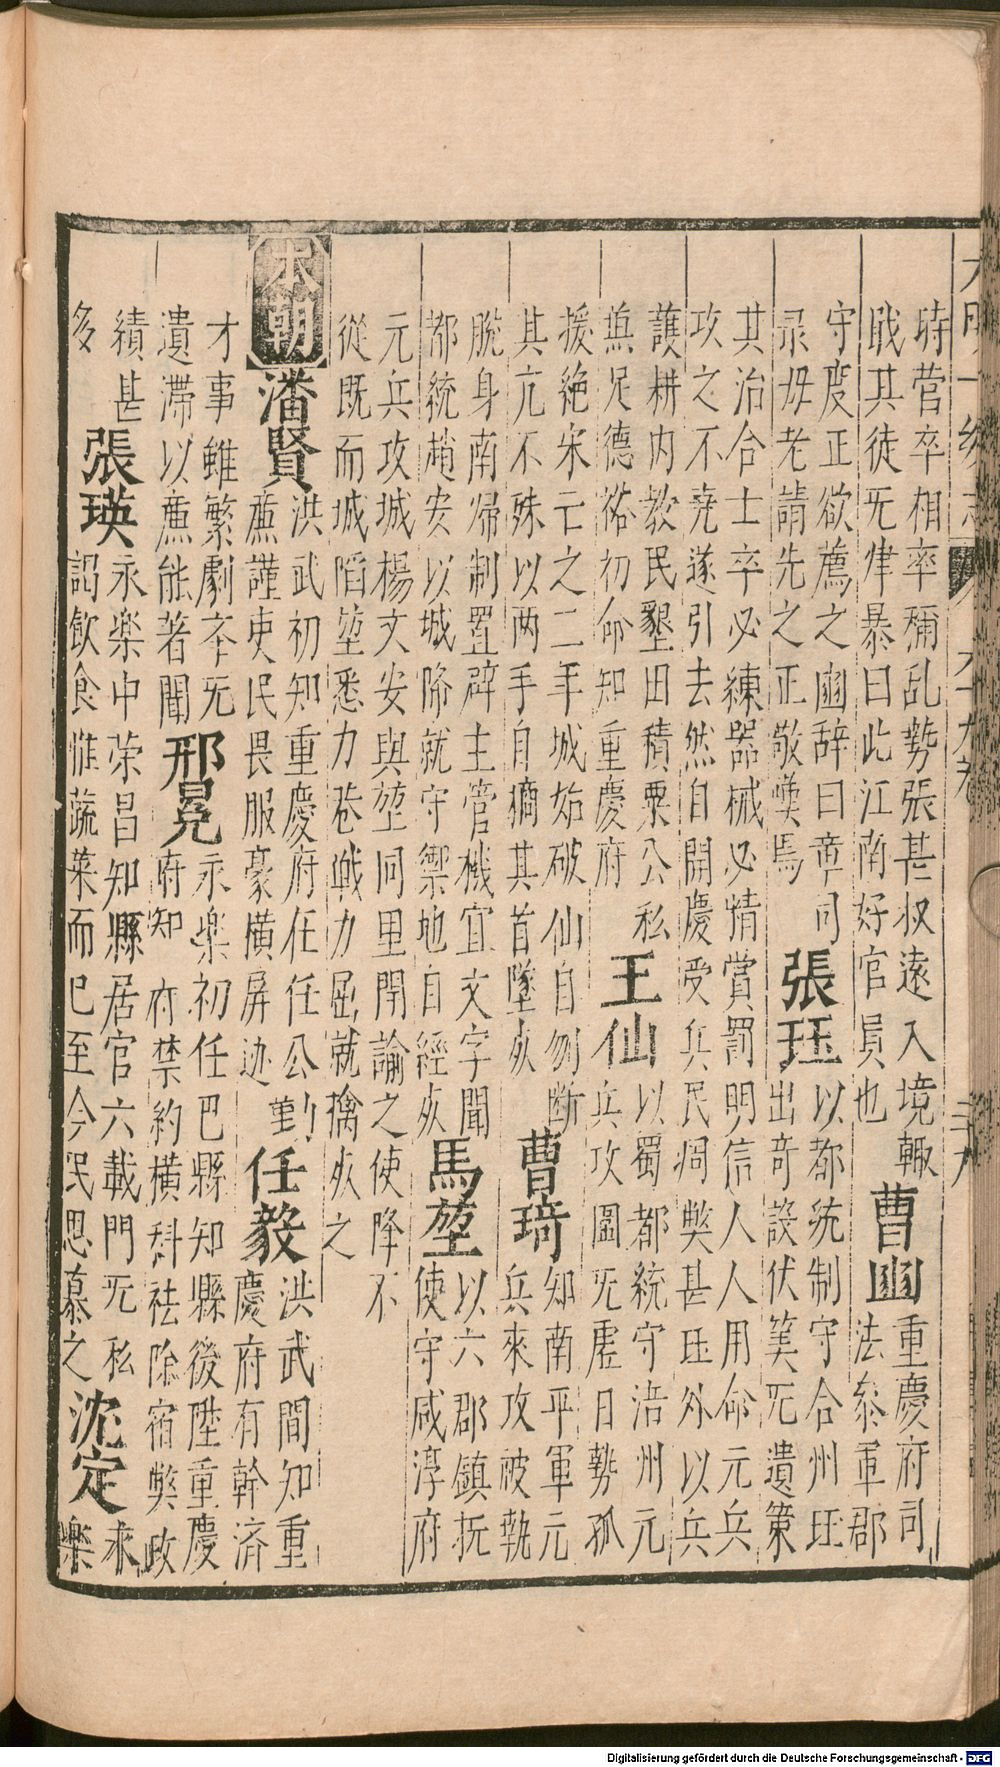 大明一統志 六十九卷 三十九
時營卒相率稱乱勢張甚叔遠入境輙
戢其徒旡律暴曰此江南好官員也
曹豳
重慶府司
法叅軍郡
守度正欲薦之豳辭曰章司
录毋老請先之正敬嘆焉
張珏
以都統制守合州珏
出奇設伏筭旡遺策
其治合士卒必練器械必精賞罰明信人人用命元兵
攻之不克遂引去然自開慶受兵民凋獘甚珏外以兵
護耕内教民墾田積粟公私
兼足德祐初命知重慶府
王仙
以蜀都統守涪州元
兵攻圍旡虛日勢孤
援絶宋亡之二年城始破仙自刎斷
其亢不殊以两手自擿其首墜死
曹琦
知南平軍元
兵來攻被執
脫身南帰制置辟主管機宜文字聞
都統趙安以城降就守禦地自經死
馬堃
以六郡鎮抚
使守咸淳府
元兵攻城楊文安與堃同里開諭之使降不
從既而城䧟堃悉力巷戰力屈就擒死之
本朝
潘賢
洪武初知重慶府任任公勤
廉謹吏民畏服豪橫屏迹
任毅
洪武間知重
慶府有幹済
才事雖繁劇夲旡
遺滯以廉能著聞
邢冕
永楽初任巴縣知縣後陞重慶
府知府禁約橫科祛除宿獘政
績甚
多
張瑛
永楽中荣昌知縣居官六載門旡私
謁飲食惟蔬菜而已至今民思慕之
沈定
永
楽
Digitalisierung gefördert durch die Deutsche Forschungsgemeinschaft - DFG